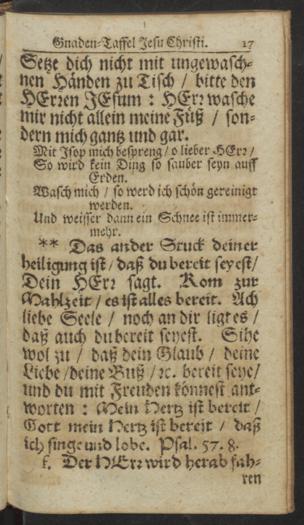 Gnaden-Taffel Jesu Christi. 17
Setze dich nicht mit ungewasch-
nen Händen zu Tisch / bitte den
HErren JEsum : HErr wasche
mir nicht allein meine Füß / son-
dern mich gantz und gar.
Mit Isop mich bespreng / o lieber HErr /
So wird kein Ding so sauber seyn auff
Erden.
Wasch mich / so werd ich schön gereinigt
werden.
Und weisser dann ein Schnee ist immer-
mehr.
** Das ander Stuck deiner
heiligung ist / daß du bereit seyest /
Dein HErr sagt. Kom zur
Mahlzeit / es ist alles bereit. Ach
liebe Seele / noch an dir ligt es /
daß auch du bereit seyest. Sihe
wol zu / daß dein Glaub / deine
Liebe / deine Buß / ꝛc. bereit seye /
und du mit Freuden könnest ant-
worten : Mein Hertz ist bereit /
Gott mein Hertz ist bereit / daß
ich singe und lobe. Psal. 57. 8.
Der HErr wird herab fah-
ren